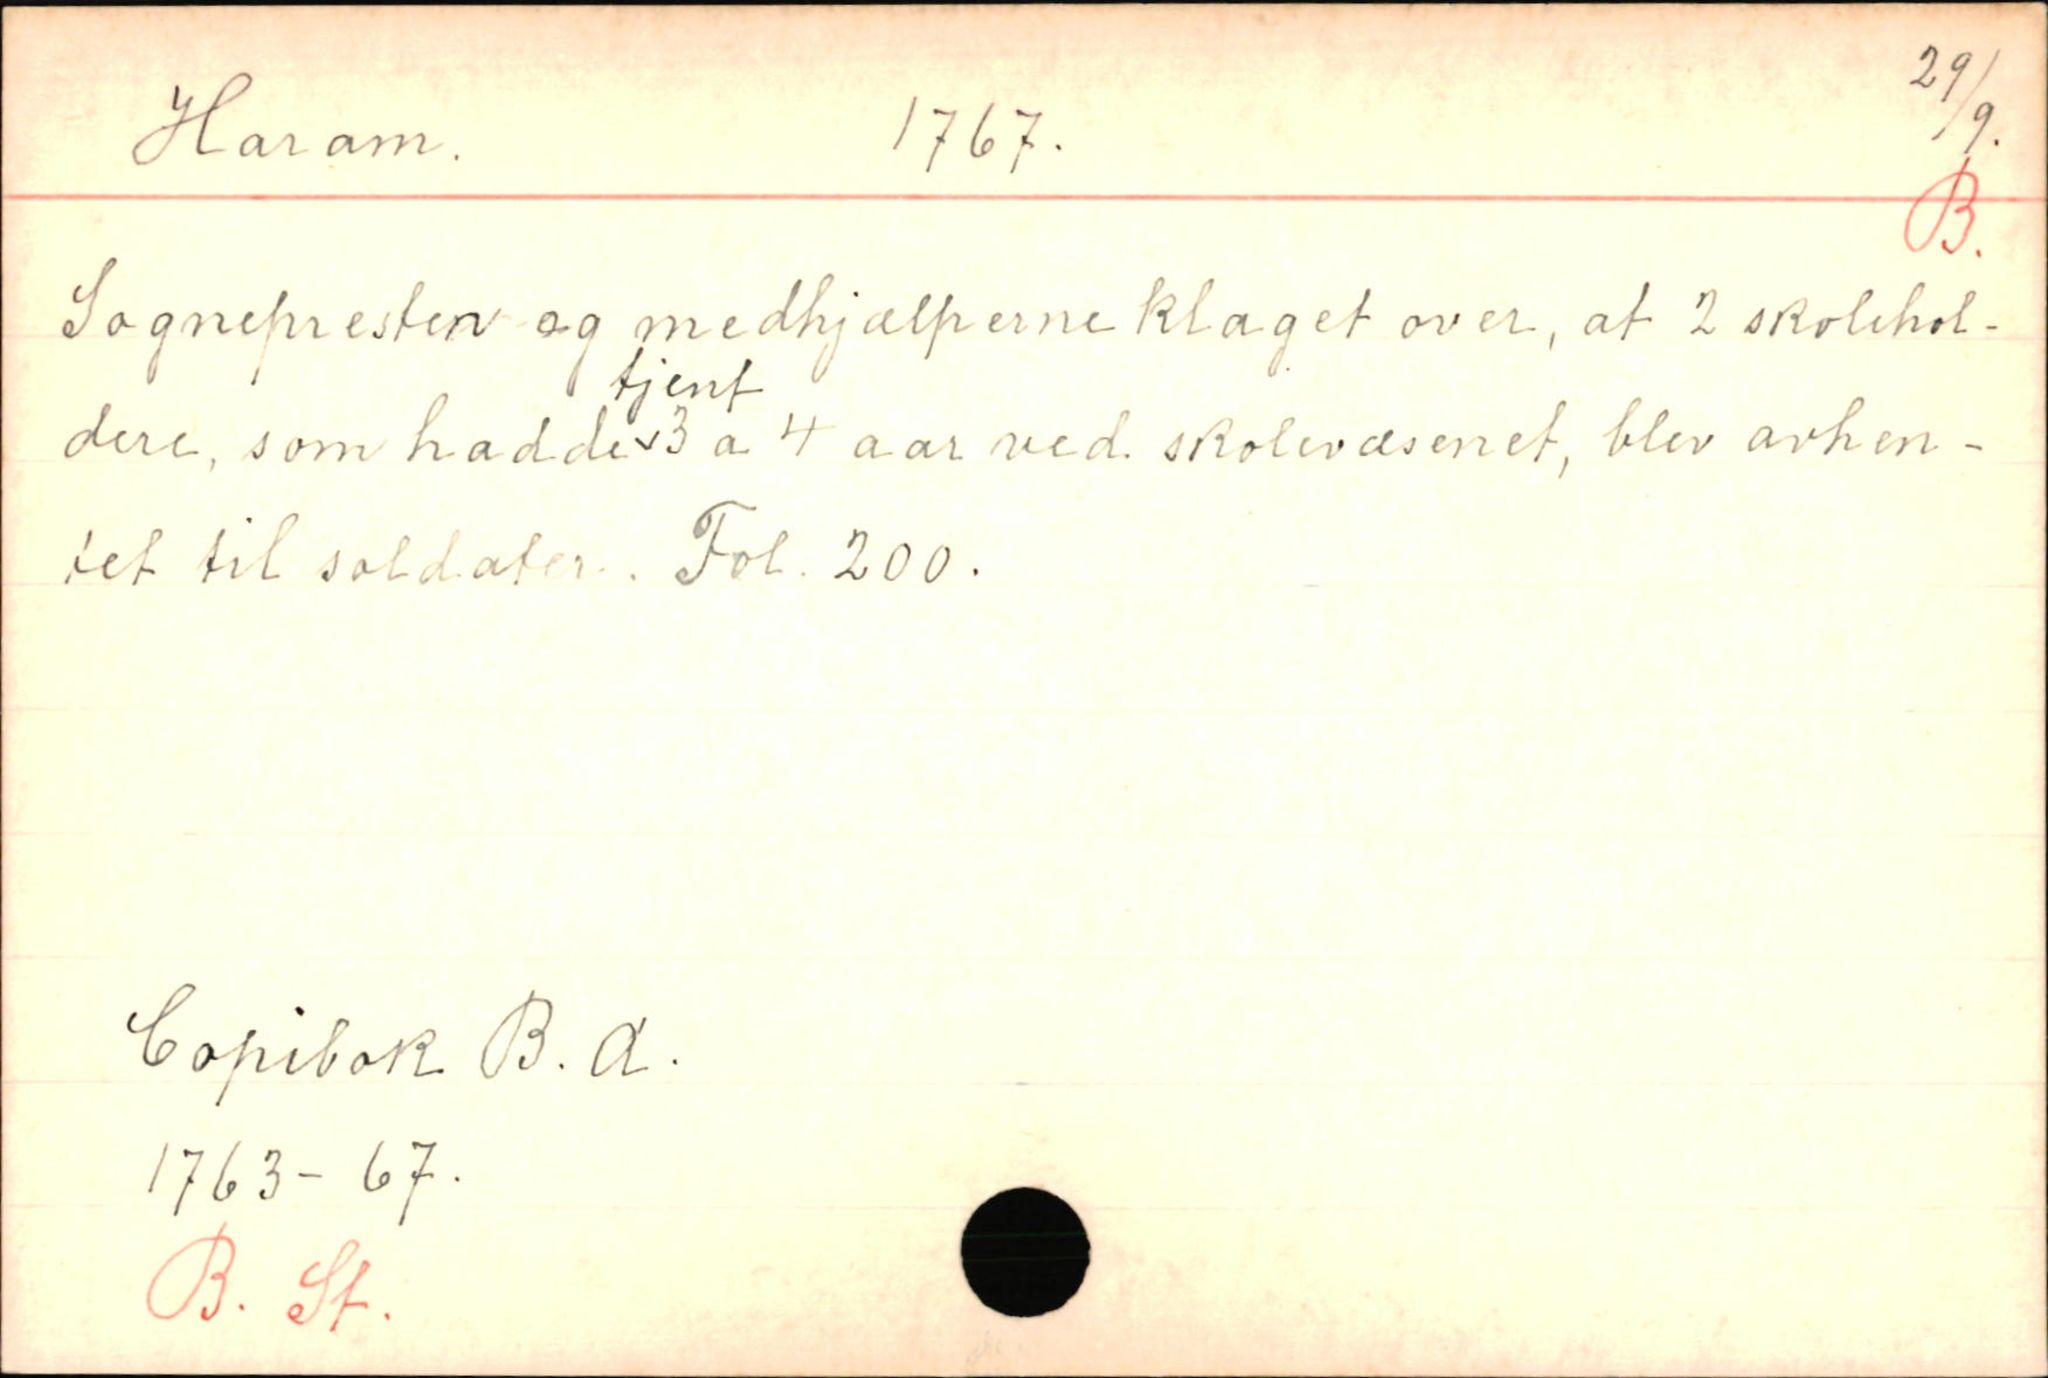 Haram. 1767. 29/9.
B.
Sognepresten og medhjælperne klaget over, at 2 skolehol-
tjent
dere, som hadde 3 a 4 aar ved skolevæsenet, blev avhen-
tet til soldater. Fol. 200.
Copibok B. A.
1763-67.
B. St.